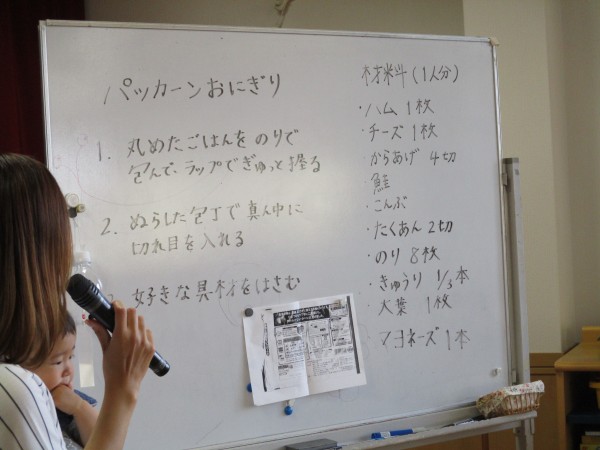 パッカーンおにぎり
1. 丸めたごはんをのりで
包んで、ラップでぎゅっと握る
2. ぬらした包丁で真ん中に
切れ目を入れる
好きな具材をはさむ
材料(1人分)
・ハム 1枚
・チーズ 1枚
・からあげ 4切
・鮭
・こんぶ
・たくあん 2切
・のり 8枚
・きゅうり 1/3本
・大葉 1枚
マヨネーズ 1本